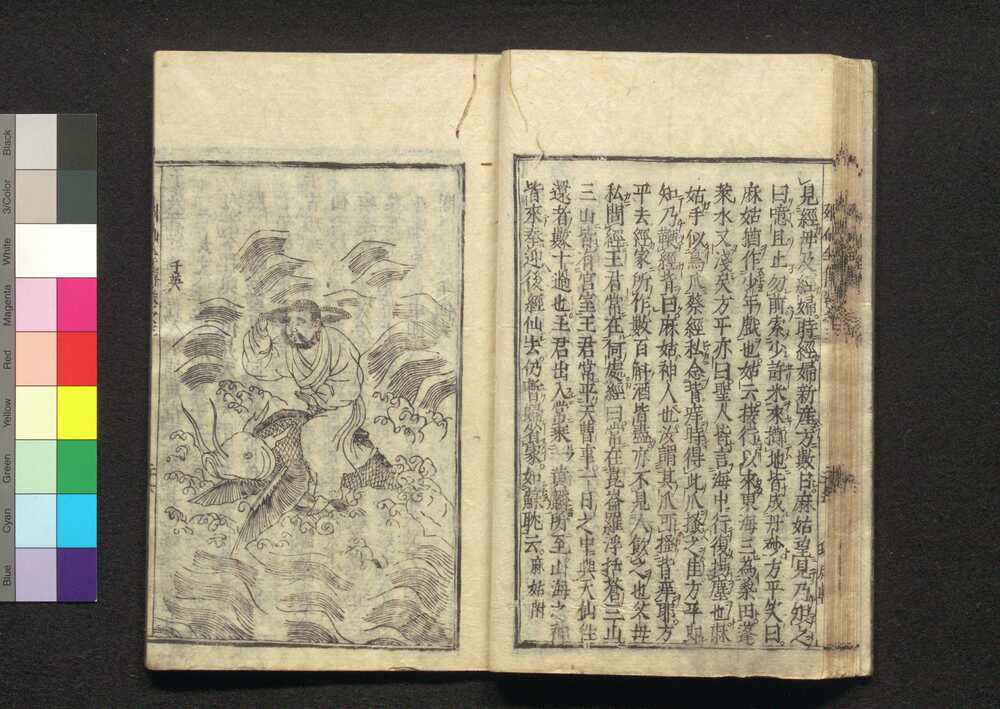 見經母及經婦時經婦新産方數日麻姑望見乃知之
曰噫且止勿前索少許米來擲地皆成丹砂方平笑曰
麻姑猶作少年戲也姑云接待以來東海三為桑田蓬
萊水又淺矣方平亦曰聖人皆言海中行復揚塵也麻
姑手似鳥爪蔡經私念背癢時得此爪搔之佳方平即
知乃鞭經背曰麻姑神人也汝謂其爪可搔背癢耶方
平去經家所作數百斛酒皆盡亦不見人飲之也父母
私問經王君常在何處經曰常在崑崙羅浮括蒼三山
三山皆有宮室王君常平天曹事一日之中與天仙往
還者數十過也王君出入常乘一黄麟所至山海之神
皆來奉迎後經仙去仍暫歸省家如蘇耽云 麻姑附
子英
Black
3/Color
White
Magenta
Red
Yellow
Green
Cyan
Blue